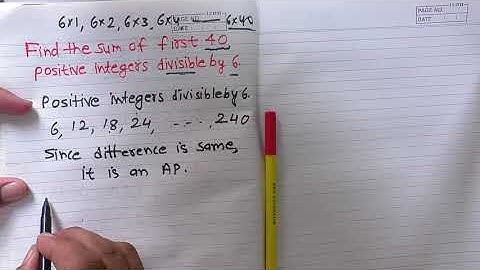 6×1, 6×2, 6×3, 6×4 —— 6×40
Find the sum of first 40
positive integers divisible by 6.
Positive integers divisible by 6.
6, 12, 18, 24, - - - -, 240
Since difference is same,
it is an AP.
PAGE NO.
DATE